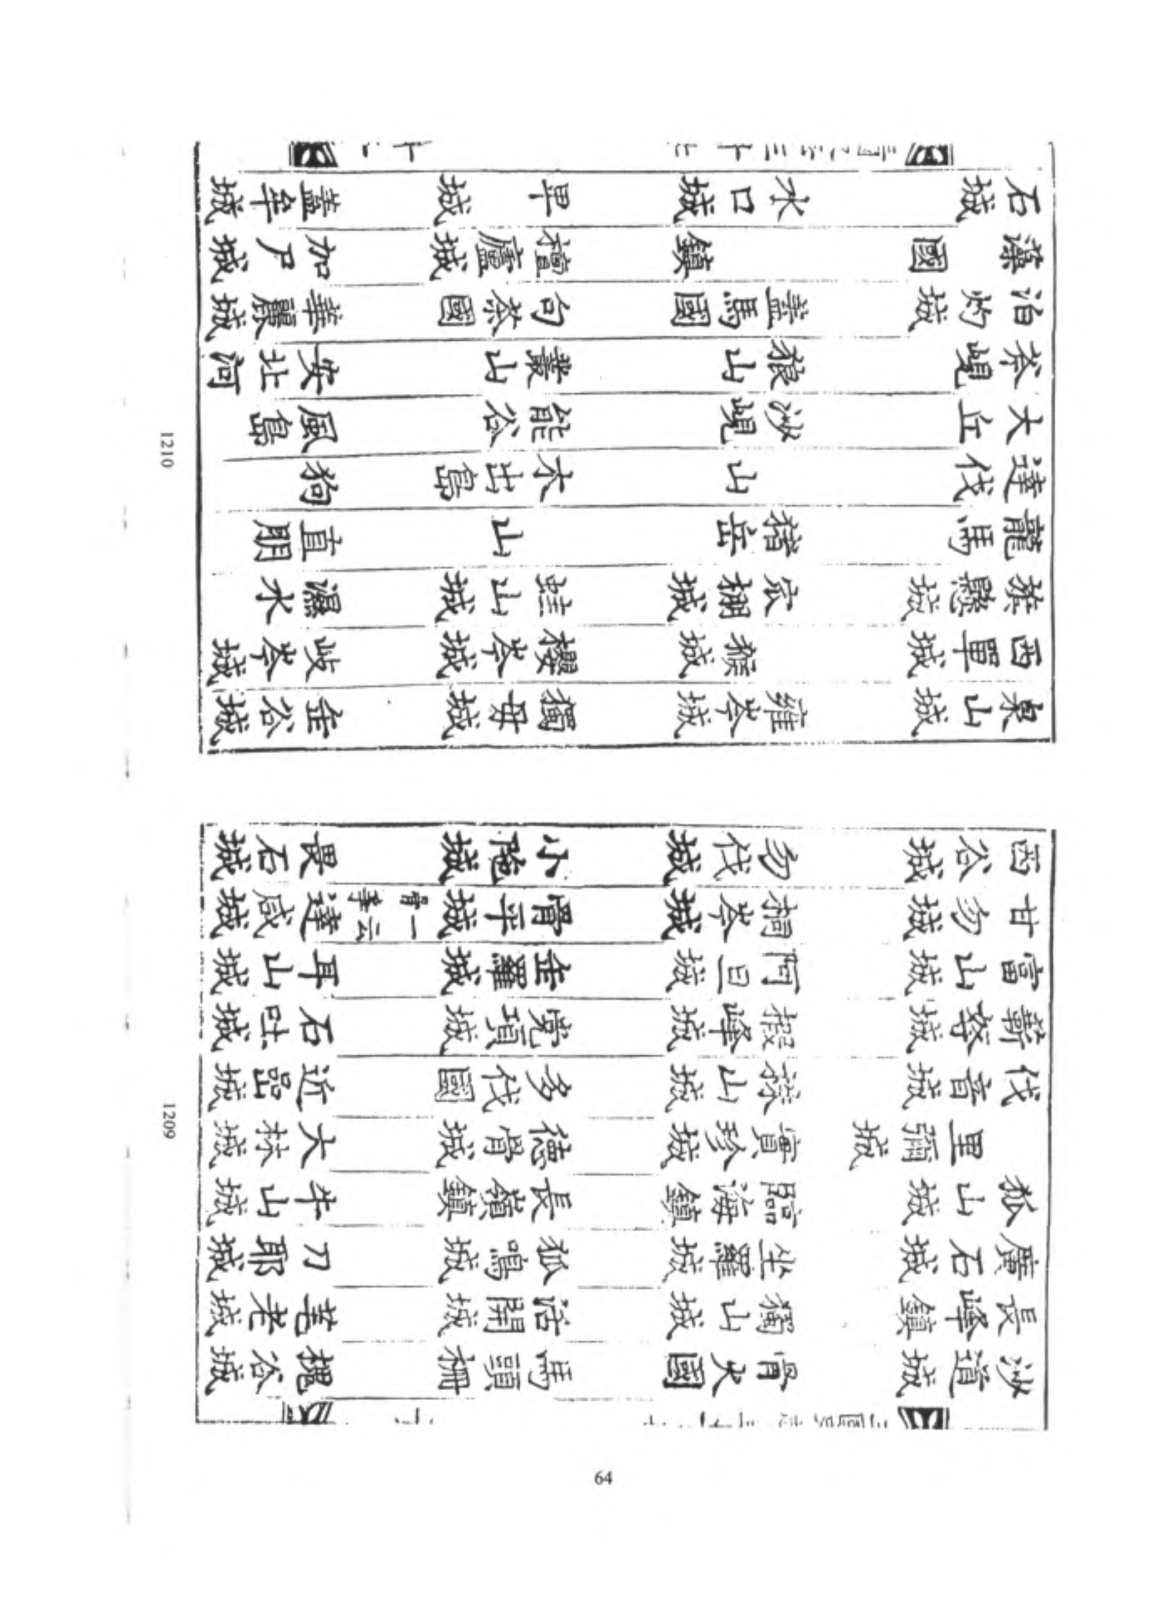 沙道城 骨火國 馬頭柵 槐谷城
長峰鎮 獨山城 活開城 芼老城
廣石城 坐羅城 狐鳴城 刀耶城
狐山城 臨海鎮 長嶺鎮 牛山城
里彌城 實珍城 德骨城 大林城
伐音城 祿山城 多伐國 近嵒城
靳弩城 椵峰城 党項城 石吐城
富山城 阿旦城 金羅城 耳山城
甘勿城 桐岑城 滑平城 一云骨爭 達咸城
西谷城 勿伐城 小陁城 畏石城
1209
泉山城 雍岑城 獨母城 缶谷城
西單城 猴城 櫻岑城 岐岑城
旅懸城 柵城 蛙山城 濕水
龍馬 猪岳 山 直朋
達伐 山 木出島 狗
大丘 沙峴 熊谷 風島
岑峴 狼山 叢山 安北河
泊灼城 蓋馬國 句茶國 華麗城
藻 國 鎮 檀廬城 加尸城
石城 水口城 卑城 蓋牟城
1210
64